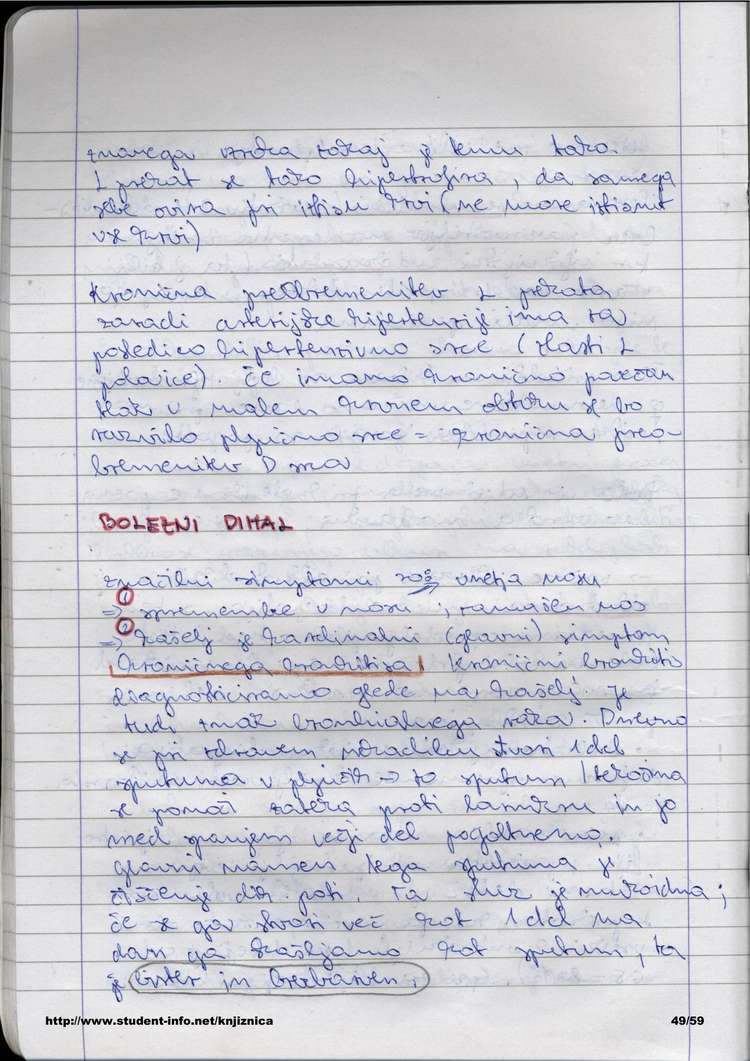 znanega vzroka zakaj je temu tako.
L prekat se tako hipertrofira, da samega
sebe ovira pri iztisu krvi (ne more iztisnit
vse krvi)
Kronična preobremenitev L prekata
zaradi arterijske hipertenzije ima za
posledico hipertenzivno srce (zlasti L
polovice). Če imamo kronično povečan
tlak v malem krvnem obtoku se bo
razvilo pljučno srce = kronična preo-
bremenitev D srca
BOLEZNI DIHAL
značilni simptomi so: vnetja nosu
① => spremembe v nosu, zamašen nos
② => kašelj je kardinalni (glavni) simptom
kroničnega bronhitisa. Kronični bronhitis
diagnosticiramo glede na kašelj. Je
tudi znak bronhialnega raka. Dnevno
se pri zdravem odraslem tvori 1 del
sputuma v pljučih -> to sputum / tekočina
se pomoči proti larinxu in jo
med spanjem večji del pogoltnemo.
Glavni namen tega sputuma je
čiščenje dih. poti. Ta sluz je mukoidna;
če se ga tvori več kot 1 del na
dan ga kašljamo kot sputum, ta
je bister in brezbarven.
http://www.student-info.net/knjiznica
49/59